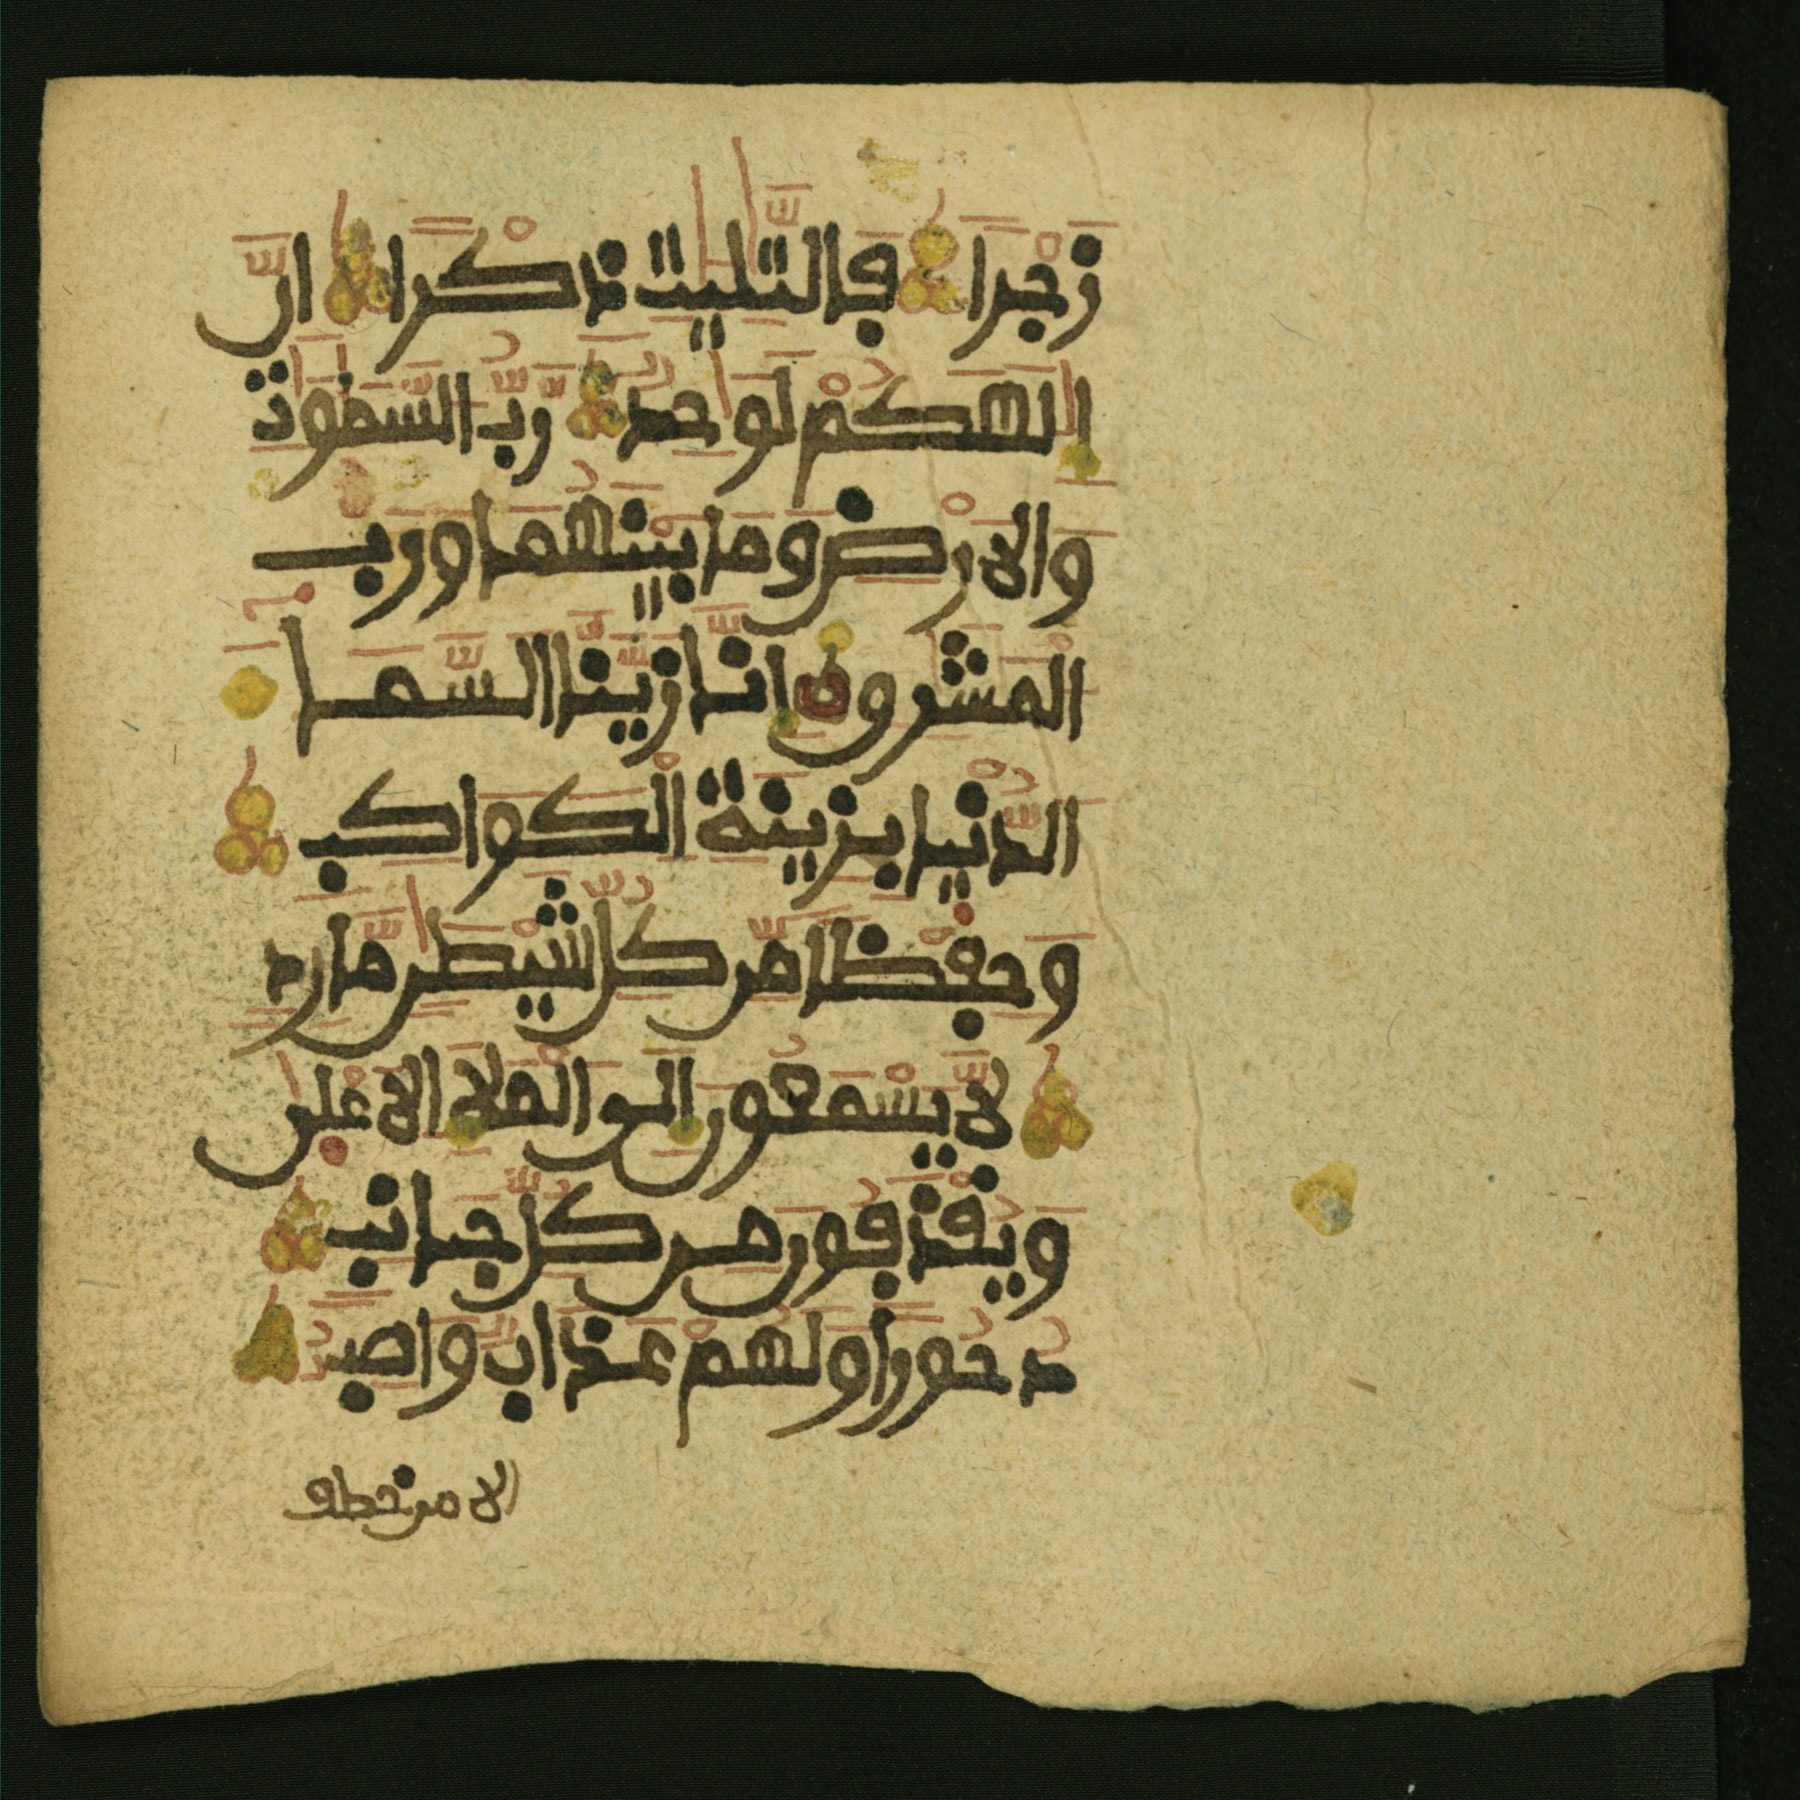 زَجْرًا فَالتَّٰلِيَٰتِ ذِكْرًا اِنَّ
اِلَٰهَكُمْ لَوَاحِدٌ رَّبُّ السَّمَٰوَٰتِ
وَالَارْضِ وَمَا بَيْنَهُمَا وَرَبُّ
الْمَشَٰرِقِ اِنَّا زَيَّنَّا السَّمَا
الدُّنْيَا بِزِينَةِ الْكَوَاكِبِ
وَحِفْظًا مِّن كُلِّ شَيْطَٰنٍ مَّارِدٍ
لَّا يَسْمَعُونَ اِلَى الْمَلَإِ الَاعْلَىٰ
وَيُقْذَفُونَ مِن كُلِّ جَانِبٍ
دُحُورًا وَلَهُمْ عَذَابٌ وَاصِبٌ
الا من خطف